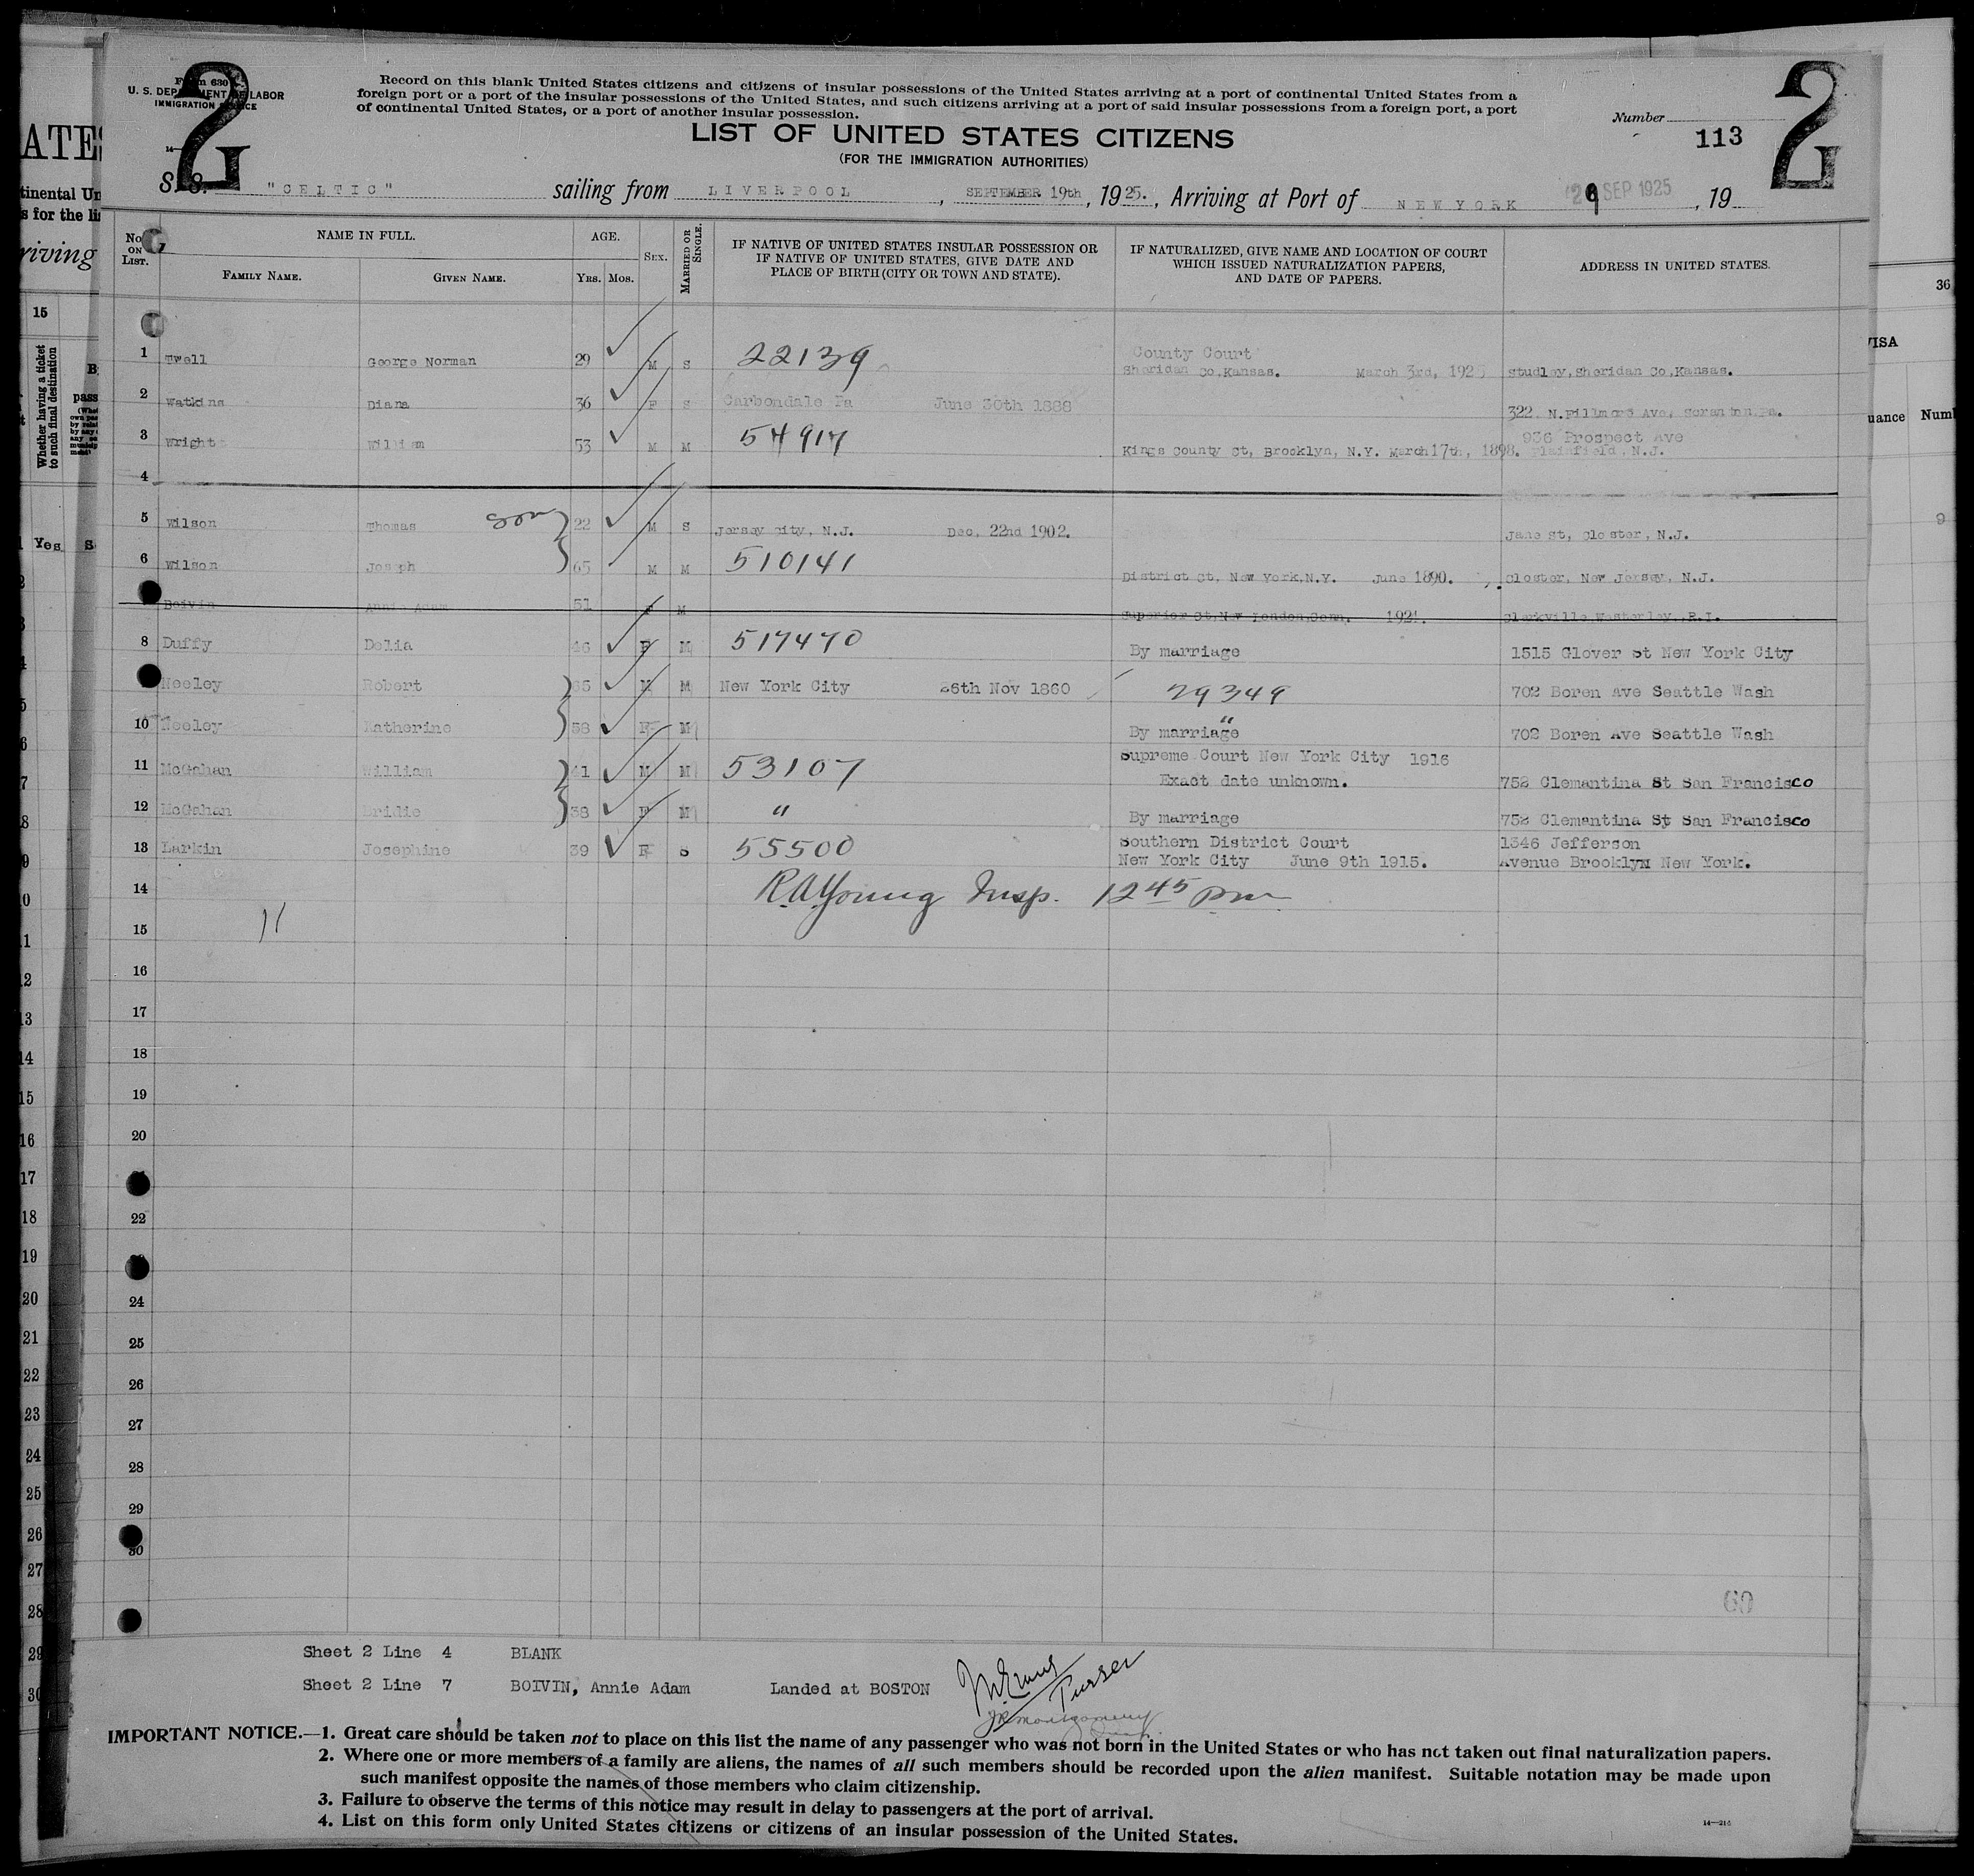 2
Form 630
U. S. DEPARTMENT OF LABOR
IMMIGRATION SERVICE
Record on this blank United States citizens and citizens of insular possessions of the United States arriving at a port of continental United States from a
foreign port or a port of the insular possessions of the United States, and such citizens arriving at a port of said insular possessions from a foreign port, a port
of continental United States, or a port of another insular possession.
Number
113
2
LIST OF UNITED STATES CITIZENS
(FOR THE IMMIGRATION AUTHORITIES)
S. S. "CELTIC" sailing from LIVERPOOL, SEPTEMBER 19th, 1925., Arriving at Port of NEW YORK 29 SEP 1925, 19
No. ON LIST. NAME IN FULL. AGE. SEX. MARRIED OR SINGLE. IF NATIVE OF UNITED STATES INSULAR POSSESSION OR IF NATIVE OF UNITED STATES, GIVE DATE AND PLACE OF BIRTH (CITY OR TOWN AND STATE). IF NATURALIZED, GIVE NAME AND LOCATION OF COURT WHICH ISSUED NATURALIZATION PAPERS, AND DATE OF PAPERS. ADDRESS IN UNITED STATES.
FAMILY NAME. GIVEN NAME. YRS. MOS.
1 Twell George Norman 29 M S 22139 County Court
Sheridan Co, Kansas. March 3rd, 1925 Studley, Sheridan Co, Kansas.
2 Watkins Diana 36 F S Carbondale Pa June 30th 1888 322, N. Fillmore Ave, Scranton Pa.
3 Wright William 53 M M 54917 Kings County Ct, Brooklyn, N.Y. March 17th, 1898. 936 Prospect Ave
Plainfield, N.J.
4
5 Wilson Thomas son 22 M S Jersey City, N.J. Dec, 22nd 1902. Jane St, Closter, N.J.
6 Wilson Joseph 65 M M 510141 District Ct, New York, N.Y. June 1890. Closter, New Jersey, N.J.
Boivin Annie Adam 51 F M Superior Ct, New London, Conn. 1921. Clarkville Westerley, R.I.
8 Duffy Delia 46 F M 517470 By marriage 1515 Glover St New York City
Neeley Robert 65 M M New York City 26th Nov 1860 29349 702 Boren Ave Seattle Wash
10 Neeley Katherine 58 F M "
By marriage 702 Boren Ave Seattle Wash
11 McGahan William 41 M M 53107 Supreme Court New York City 1916
Exact date unknown. 752 Clemantina St San Francisco
12 McGahan Bridie 38 F M " By marriage 752 Clemantina St San Francisco
13 Larkin Josephine 39 F S 55500 Southern District Court 1346 Jefferson
New York City June 9th 1915. Avenue Brooklyn New York.
14 R.A. Young Insp. 12 45 pm
11
15
16
17
18
19
20
22
24
25
26
27
28
29
30
60
Sheet 2 Line 4 BLANK
Sheet 2 Line 7 BOIVIN, Annie Adam Landed at BOSTON
Purser
JR Montgomery
IMPORTANT NOTICE.—1. Great care should be taken not to place on this list the name of any passenger who was not born in the United States or who has not taken out final naturalization papers.
2. Where one or more members of a family are aliens, the names of all such members should be recorded upon the alien manifest. Suitable notation may be made upon
such manifest opposite the names of those members who claim citizenship.
3. Failure to observe the terms of this notice may result in delay to passengers at the port of arrival.
4. List on this form only United States citizens or citizens of an insular possession of the United States.
14—214